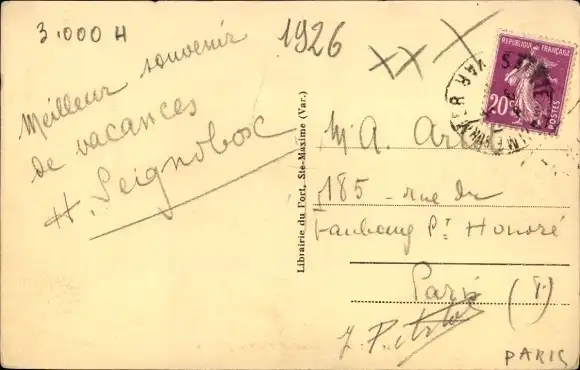 3.000 H
1926
XX X
Meilleur souvenir
de vacances
H. Seignobosc
Librairie du Port, Ste-Maxime (Var.)
REPUBLIQUE FRANÇAISE
20c
POSTES
VAR
M A.
185 - rue du
Faubourg St Honoré
Paris
PARIS